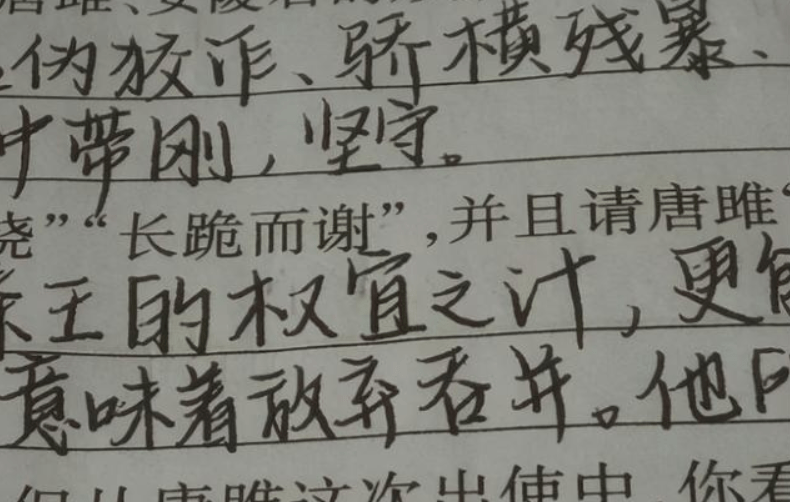 唐雎、安陵君的
伪狡诈、骄横残暴、
中带刚，坚守。
挠”“长跪而谢”，并且请唐雎“
秦王的权宜之计，更
意味着放弃吞并。他
但从唐雎这次出使中，你看